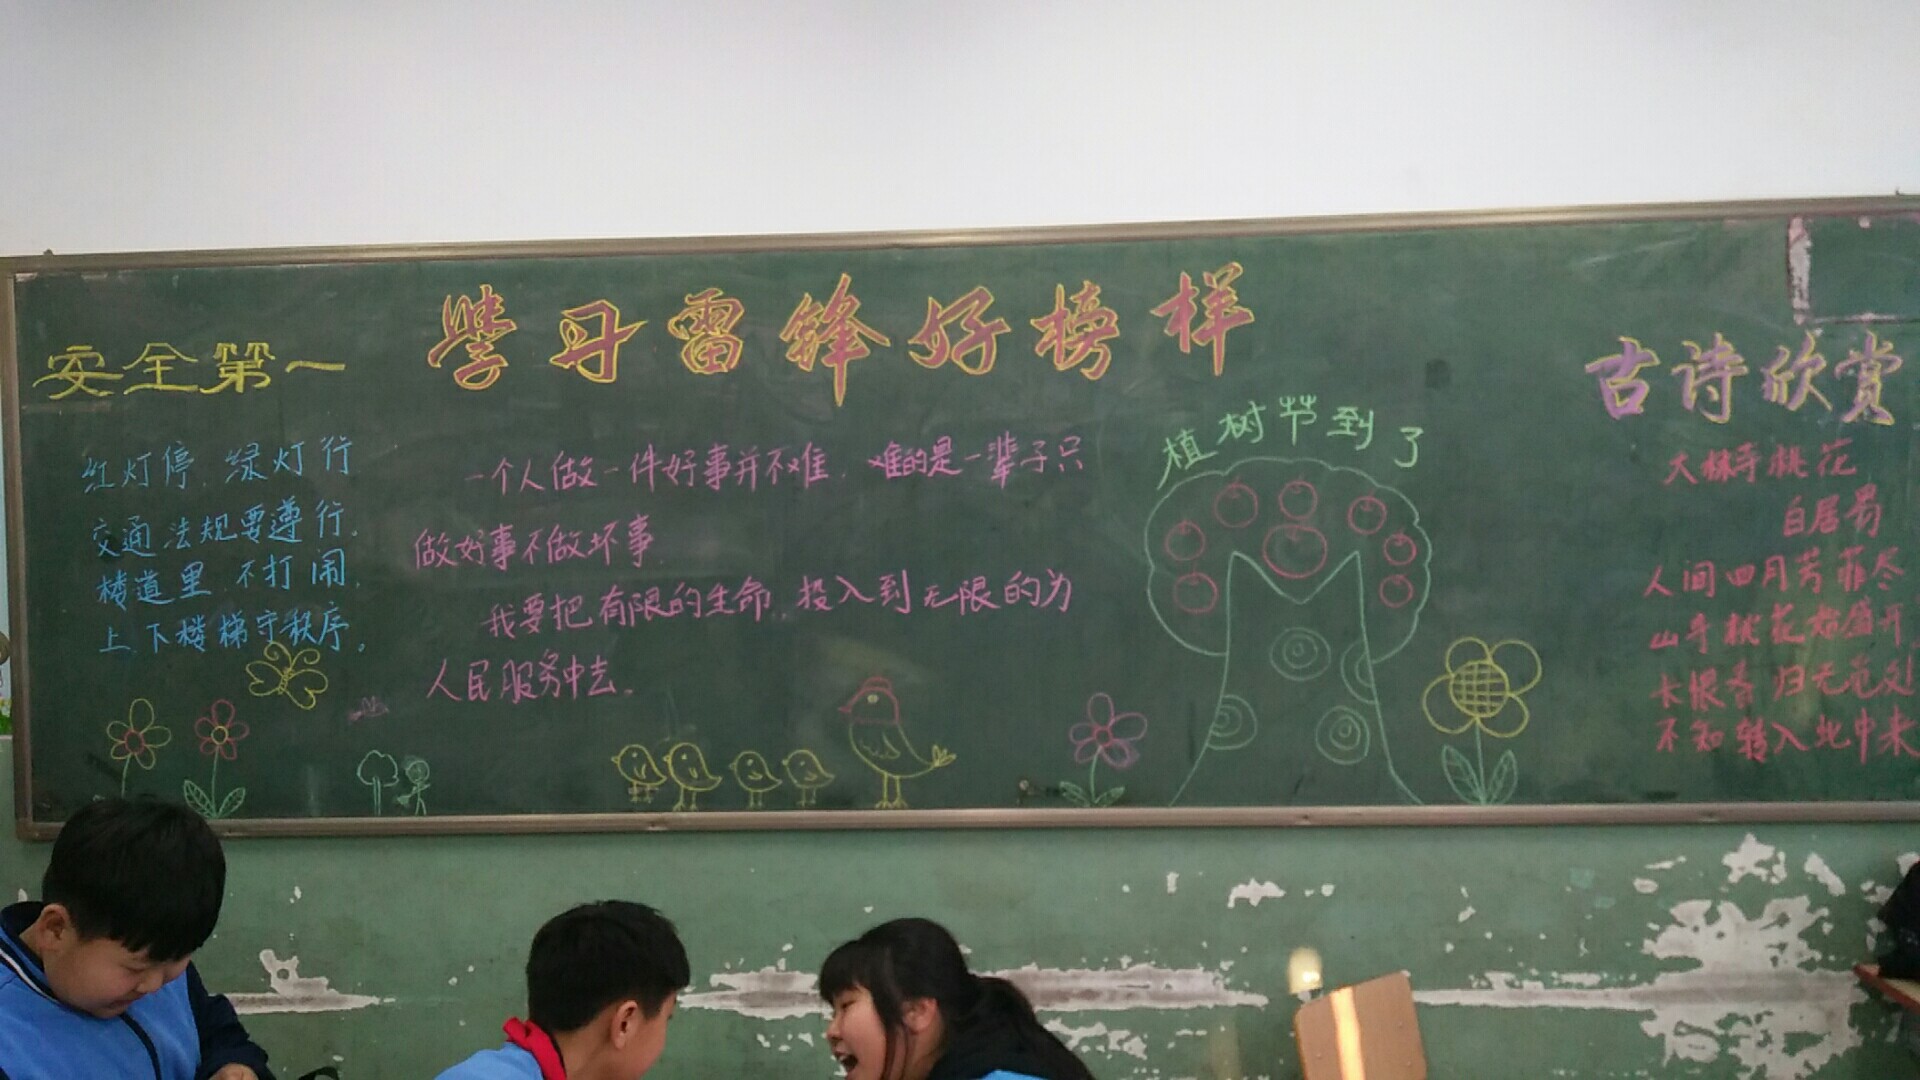 安全第一
红灯停，绿灯行
交通法规要遵行。
楼道里，不打闹，
上下楼梯守秩序。
学丹雷锋好榜样
一个人做一件好事并不难，难的是一辈子只
做好事不做坏事
我要把有限的生命，投入到无限的为
人民服务中去。
植树节到了
古诗欣赏
大林寺桃花
白居易
人间四月芳菲尽
山寺桃花始盛开。
长恨春归无觅处
不知转入此中来